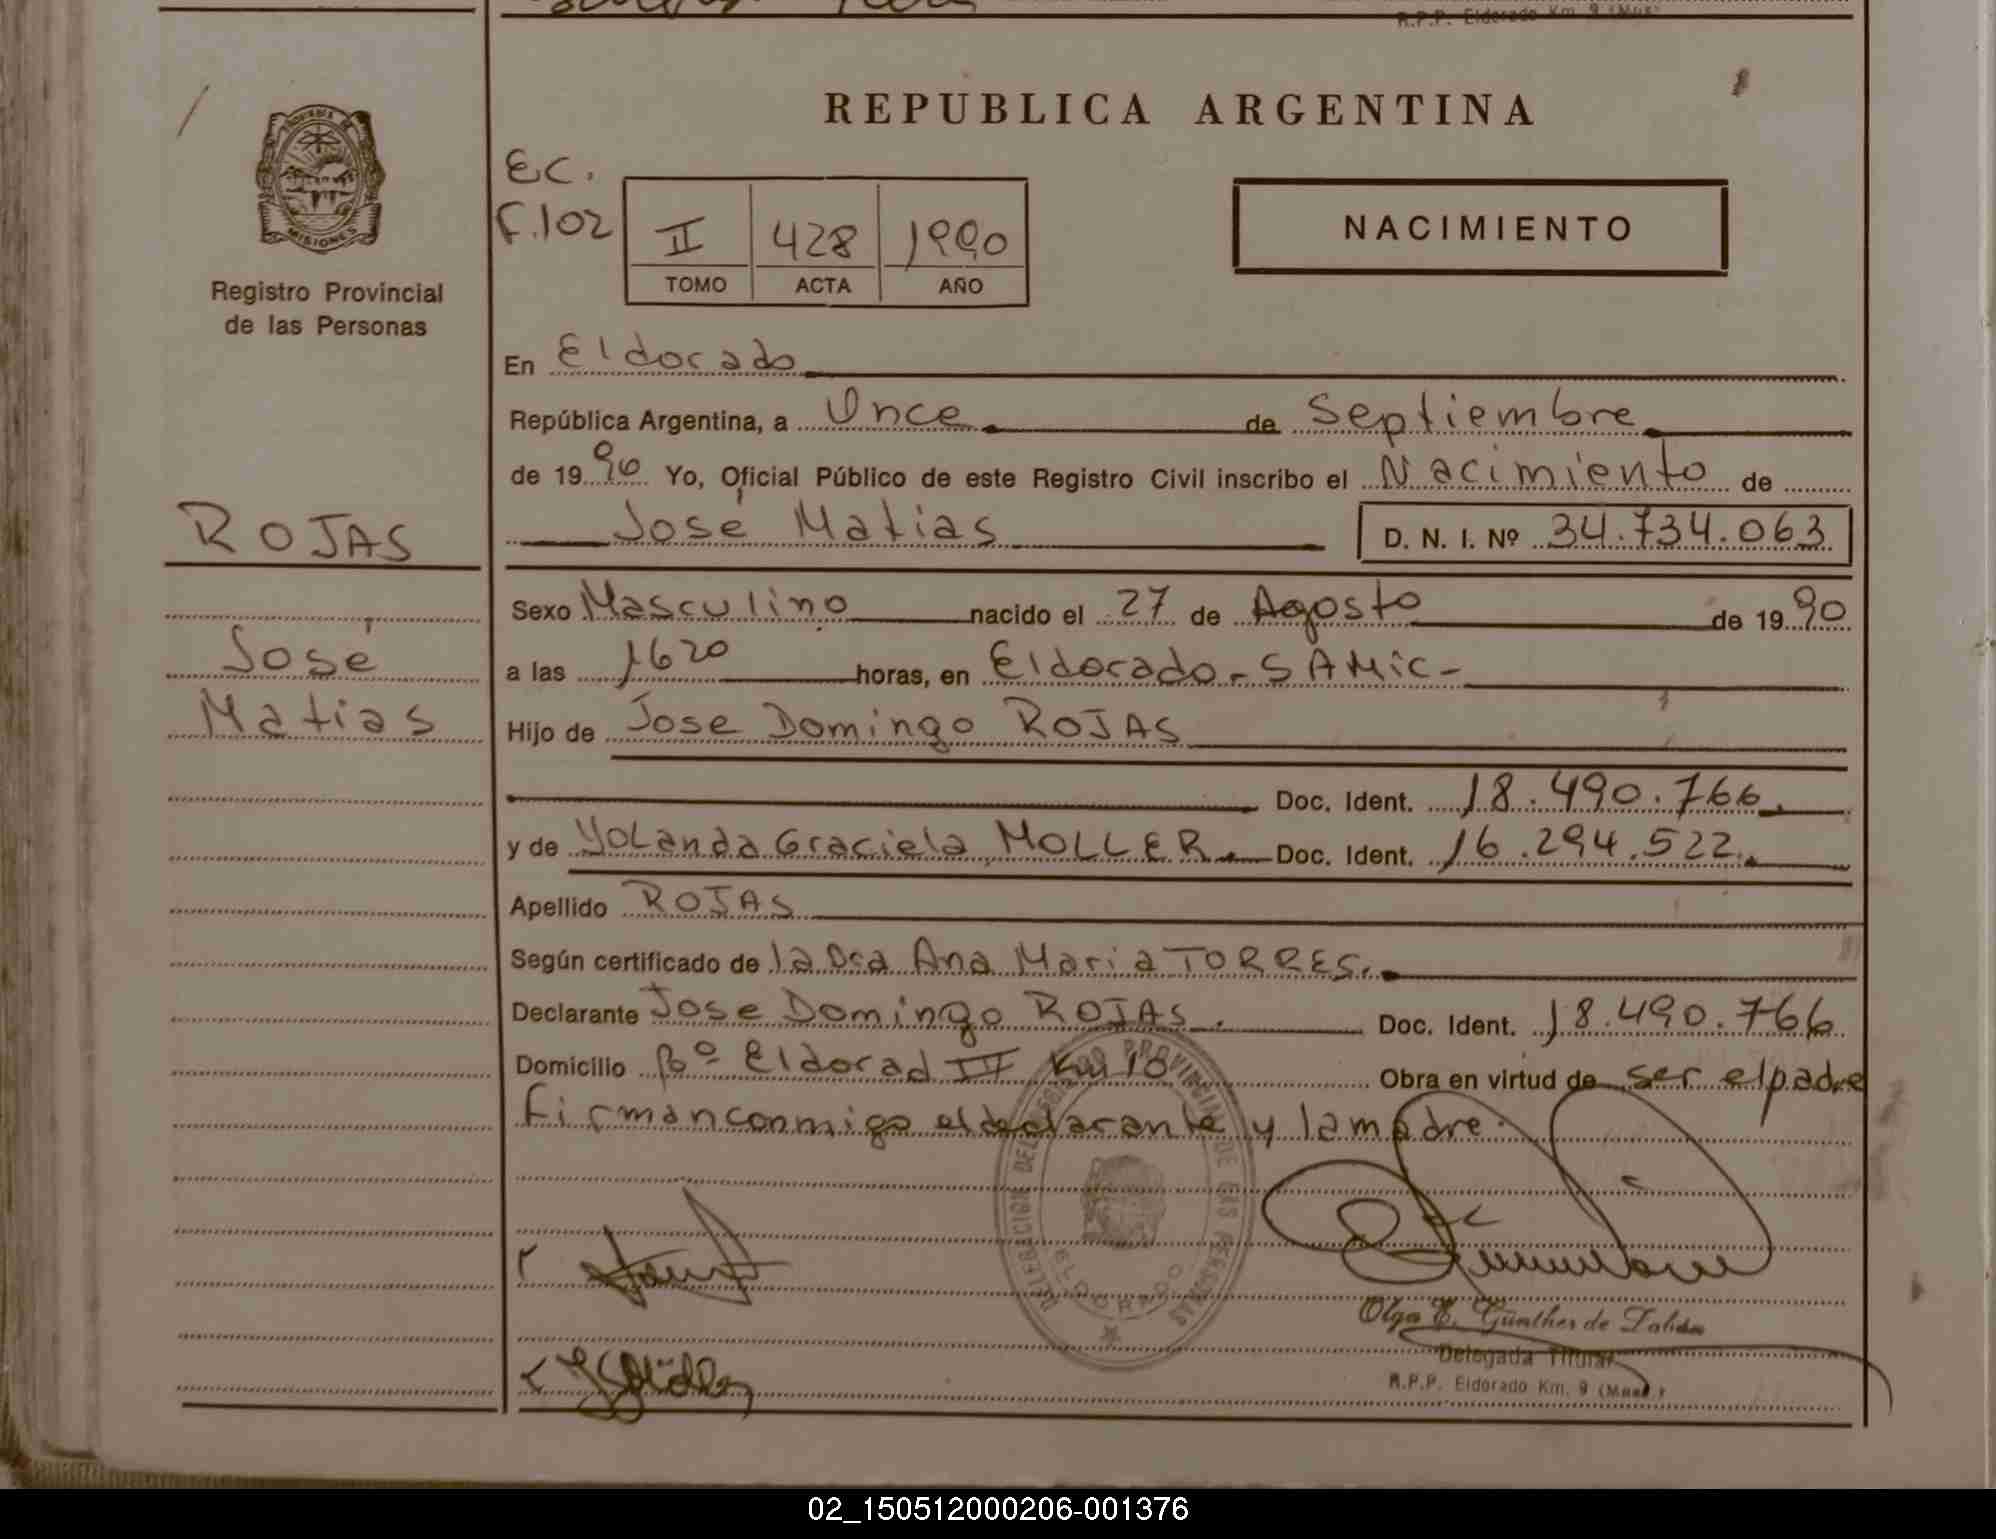 R.P.P. Eldorado Km. 9 (Mns.)
PROVINCIA DE
MISIONES
Registro Provincial
de las Personas
REPUBLICA ARGENTINA
EC.
F.102
II 428 1990
TOMO ACTA AÑO
NACIMIENTO
En Eldorado
República Argentina, a Once de Septiembre
de 1990 Yo, Oficial Público de este Registro Civil inscribo el Nacimiento de
ROJAS
José Matias D. N. I. Nº 34.734.063
Sexo Masculino nacido el 27 de Agosto de 1990
José
a las 1620 horas, en Eldorado - SAMic-
Matias
Hijo de Jose Domingo ROJAS
Doc. Ident. 18.490.766.
y de Yolanda Graciela MOLLER. Doc. Ident. 16.294.522.
Apellido ROJAS
Según certificado de la Dra Ana Maria TORRES.
Declarante Jose Domingo ROJAS. Doc. Ident. 18.490.766
Domicilio Bº Eldorad II Km 10 Obra en virtud de ser el padre
Firman conmigo el declarante y la madre.
DELEGACION DEL REGISTRO PROVINCIAL DE LAS PERSONAS
ELDORADO
Olga E. Günther de
Delegada Titular
R.P.P. Eldorado Km. 9 (Mnes.)
02_150512000206-001376